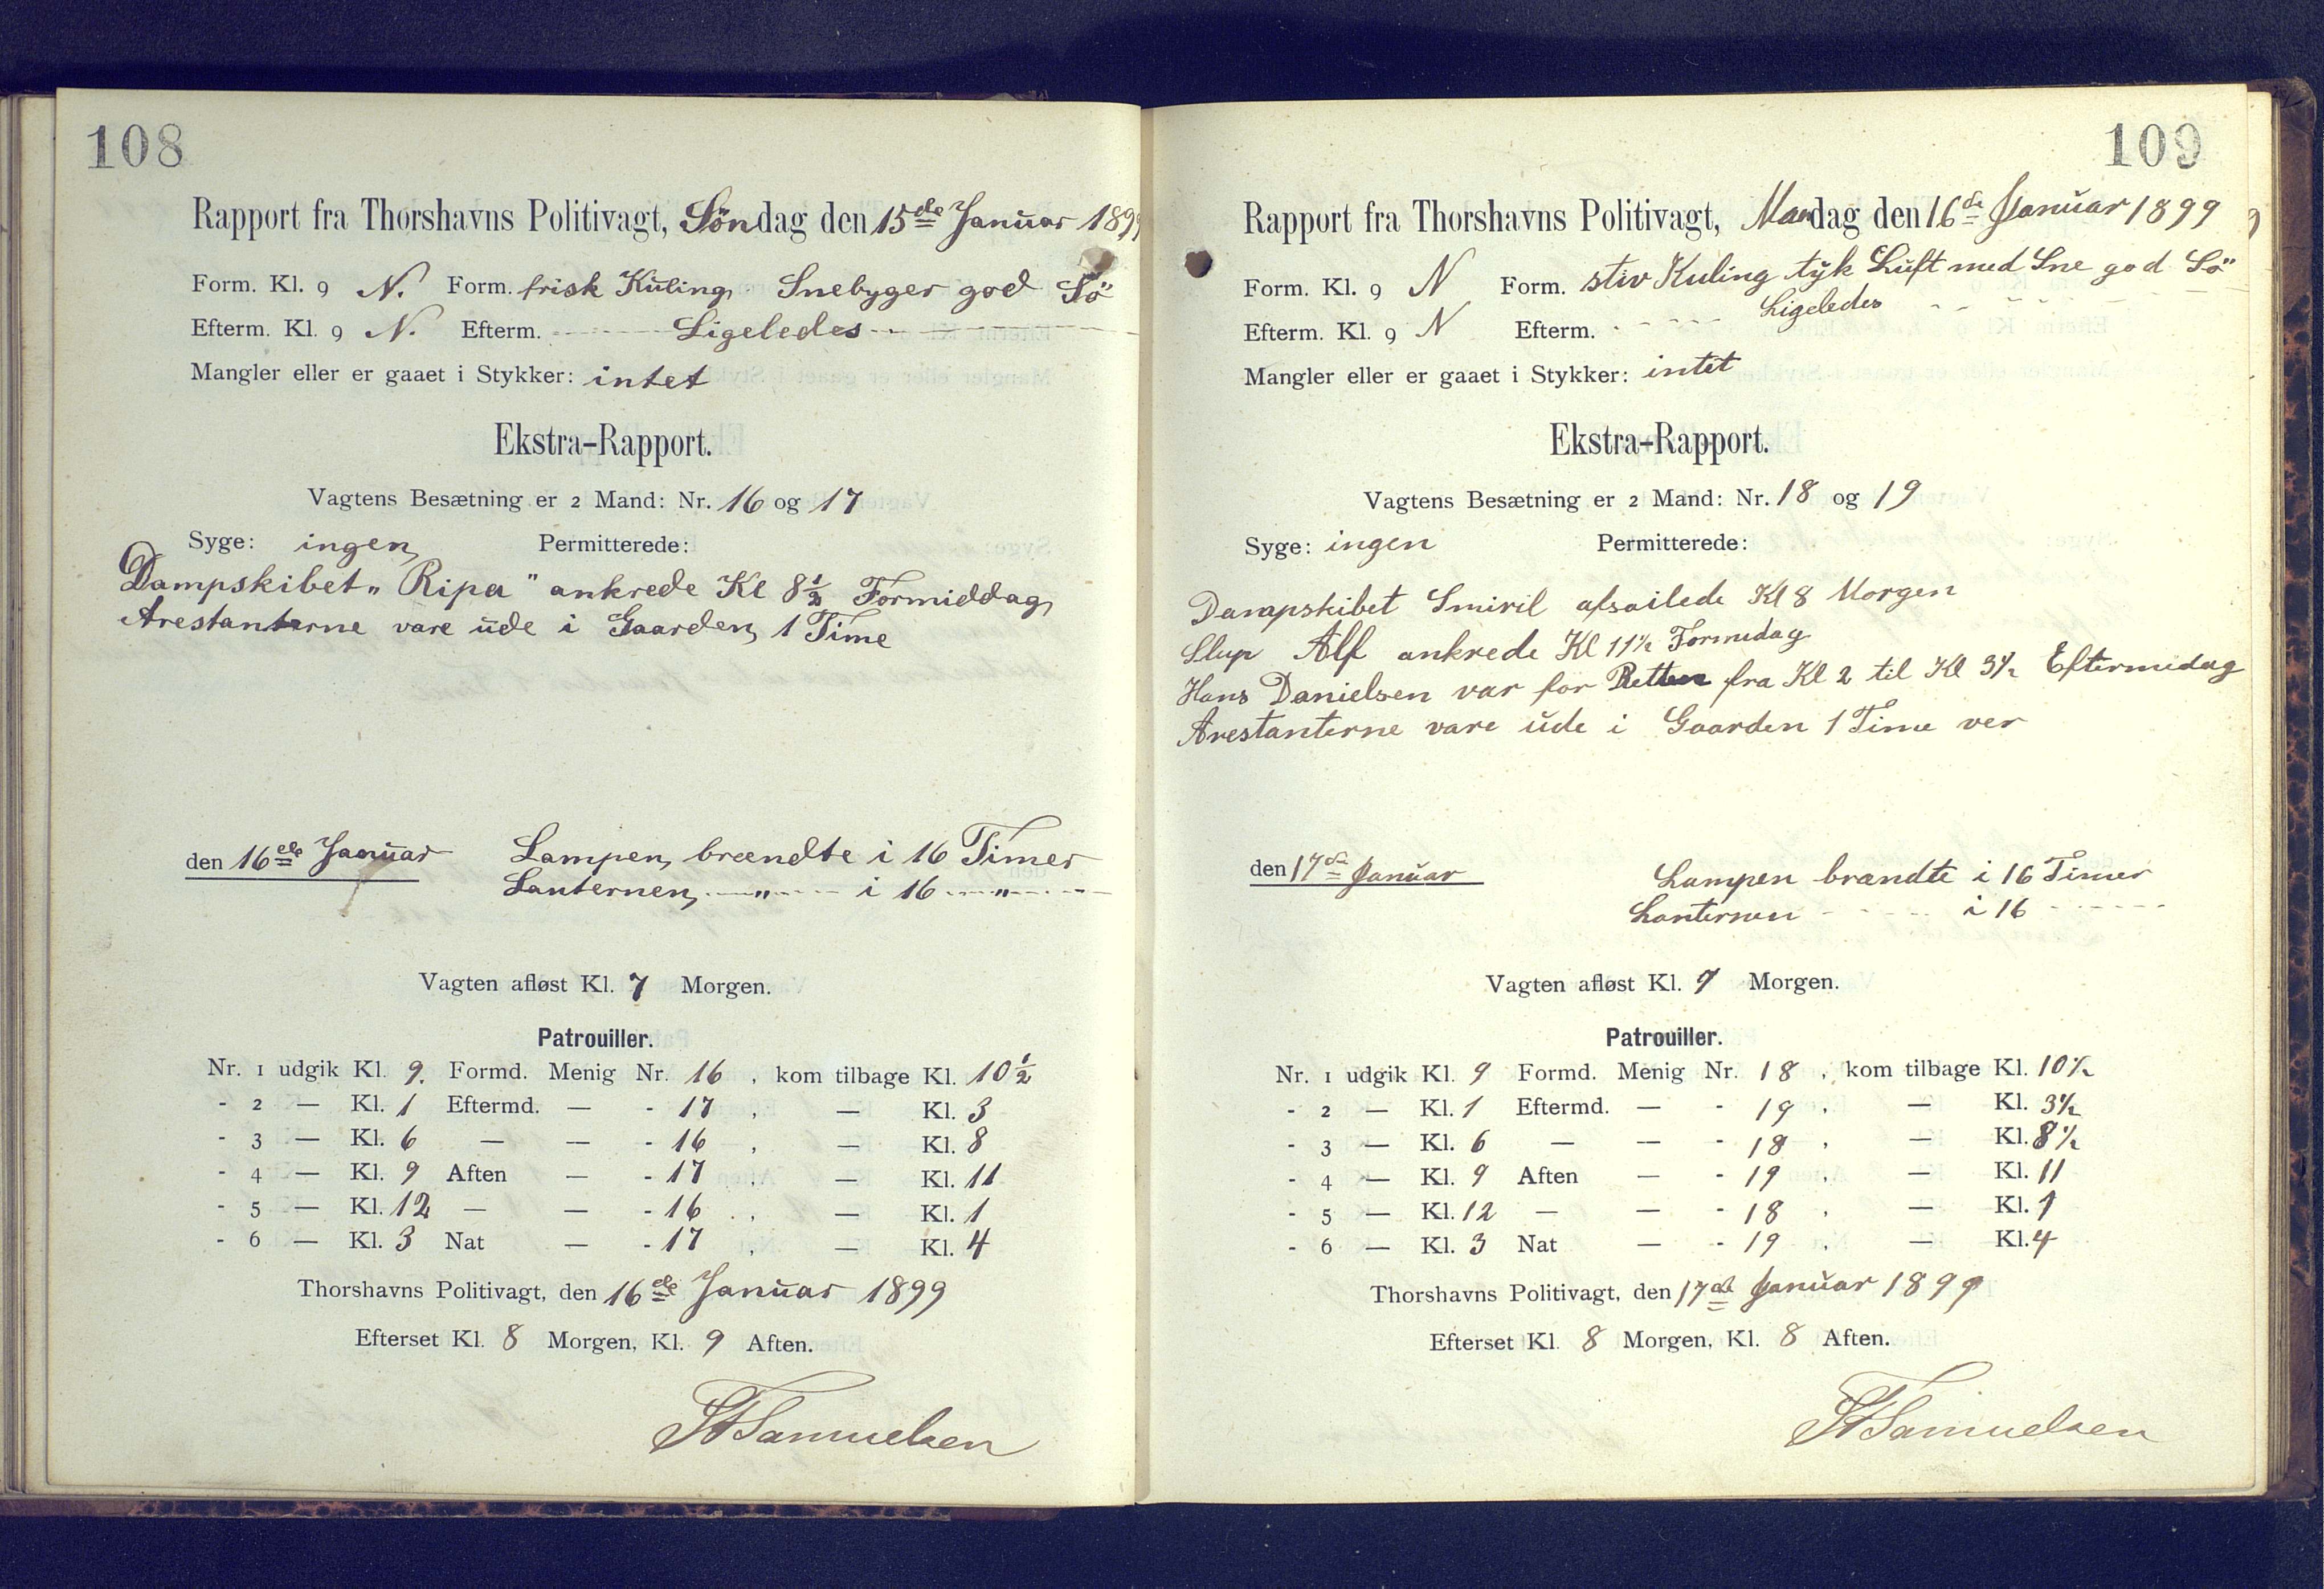 108
Rapport fra Thorshavns Politivagt, Söndag den 15de Januar 1899
Form. Kl. 9 N. Form. frisk Kuling Snebyger god Sö
Efterm. Kl. 9 N. Efterm. Ligeledes
Mangler eller er gaaet i Stykker: intet
Ekstra-Rapport.
Vagtens Besætning er 2 Mand: Nr. 16 og 17
Syge: ingen Permitterede:
Dampskibet „Ripa" ankrede Kl 8 1/2 Formiddag
Arestanterne vare ude i Gaarden 1 Time
den 16de Januar Lampen brændte i 16 Timer
Lanternen — " — i 16 — " —
Vagten afløst Kl. 7 Morgen.
Patrouiller.
Nr. 1 udgik Kl. 9. Formd. Menig Nr. 16 , kom tilbage Kl. 10 1/2
- 2 — Kl. 1 Eftermd. — - 17 , — Kl. 3
- 3 — Kl. 6 — — - 16 , — Kl. 8
- 4 — Kl. 9 Aften — - 17 , — Kl. 11
- 5 — Kl. 12 — — - 16 , — Kl. 1
- 6 — Kl. 3 Nat — - 17 , — Kl. 4
Thorshavns Politivagt, den 16de Januar 1899
Efterset Kl. 8 Morgen, Kl. 9 Aften.
Samuelsen
109
Rapport fra Thorshavns Politivagt, Mandag den 16de Januar 1899
Form. Kl. 9 N Form. stiv Kuling tyk Luft med Sne god Sö
Efterm. Kl. 9 N Efterm. Ligeledes
Mangler eller er gaaet i Stykker: intet
Ekstra-Rapport.
Vagtens Besætning er 2 Mand: Nr. 18 og 19
Syge: ingen Permitterede:
Dampskibet Smiril afsailede Kl 8 Morgen
Slup Alf ankrede Kl 11 1/2 Formidag
Hans Danielsen var for Retten fra Kl 2 til Kl 3 1/2 Eftermidag
Arestanterne vare ude i Gaarden 1 Time ver
den 17de Januar Lampen brandte i 16 Timer
Lanternen - - - - i 16 - - - -
Vagten afløst Kl. 7 Morgen.
Patrouiller.
Nr. 1 udgik Kl. 9 Formd. Menig Nr. 18 , kom tilbage Kl. 10 1/2
- 2 — Kl. 1 Eftermd. — - 19 , — Kl. 3 1/2
- 3 — Kl. 6 — — - 18 , — Kl. 8 1/2
- 4 — Kl. 9 Aften — - 19 , — Kl. 11
- 5 — Kl. 12 — — - 18 , — Kl. 1
- 6 — Kl. 3 Nat — - 19 , — Kl. 4
Thorshavns Politivagt, den 17de Januar 1899
Efterset Kl. 8 Morgen, Kl. 8 Aften.
Samuelsen